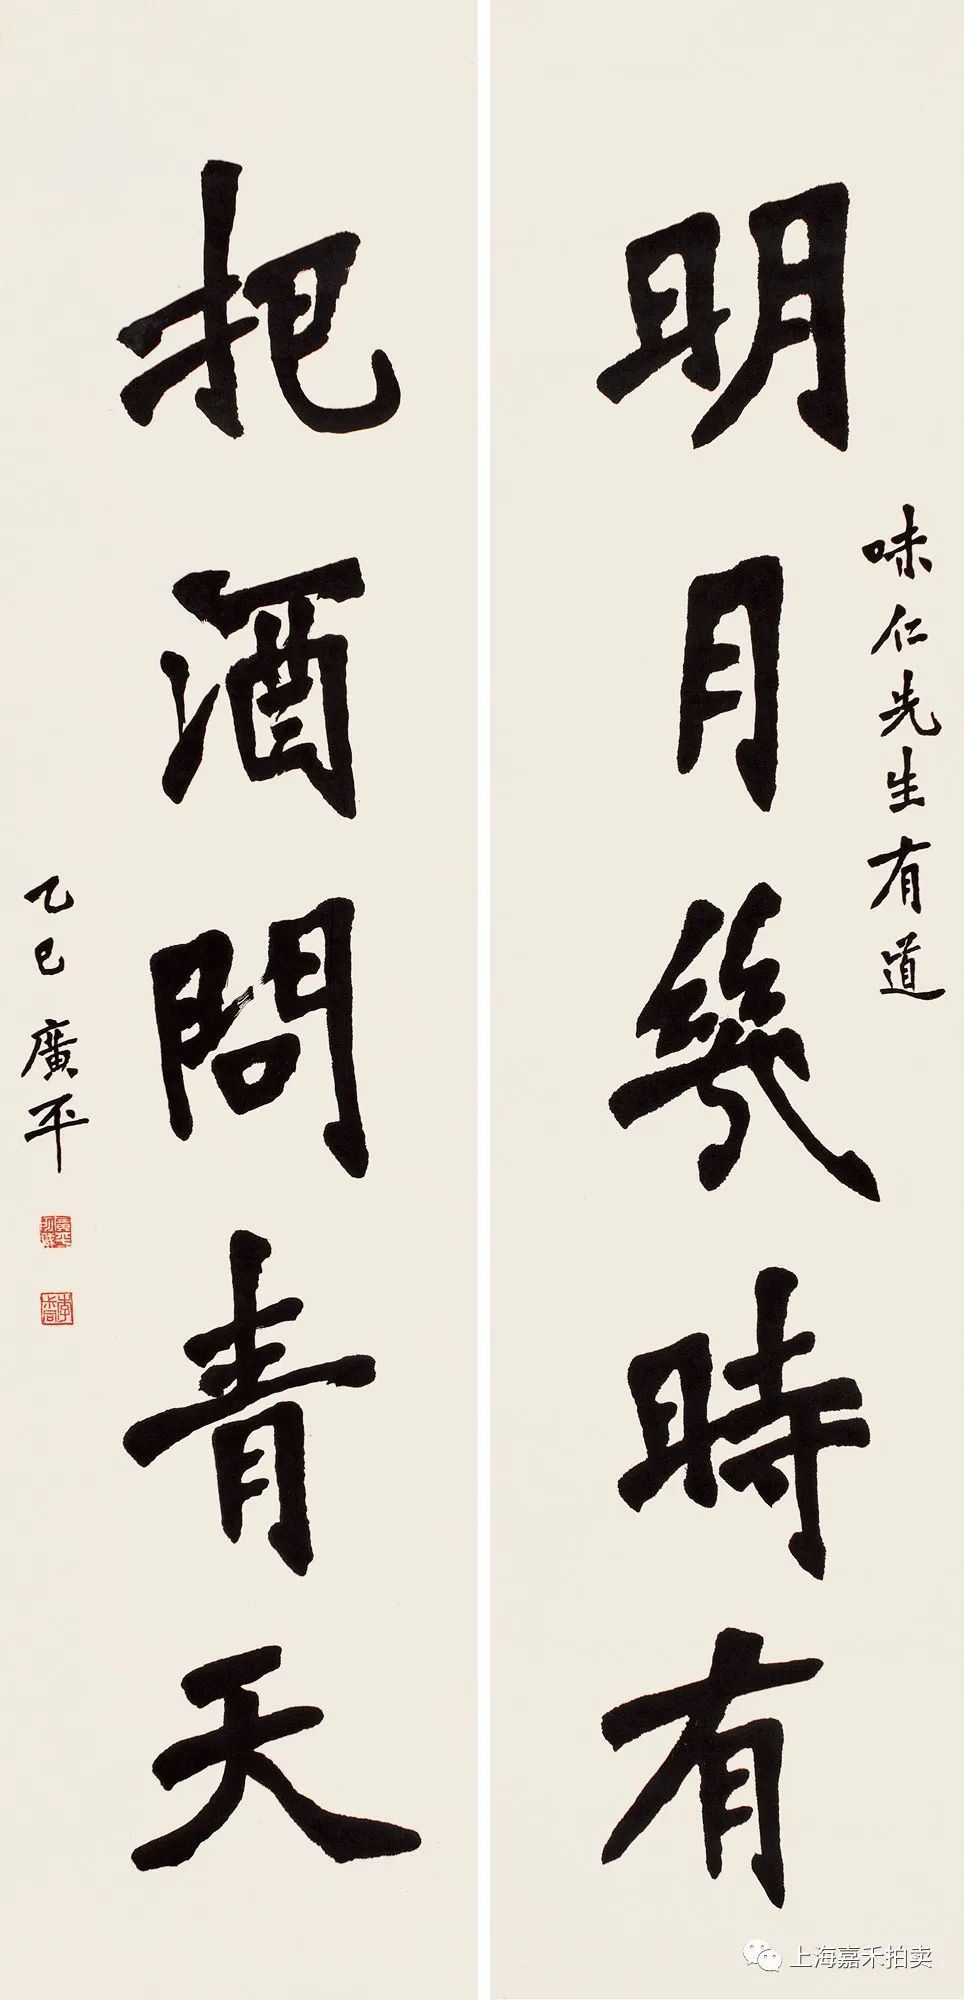 味仁先生有道
明月幾時有
把酒問青天
乙巳 廣平
上海嘉禾拍卖